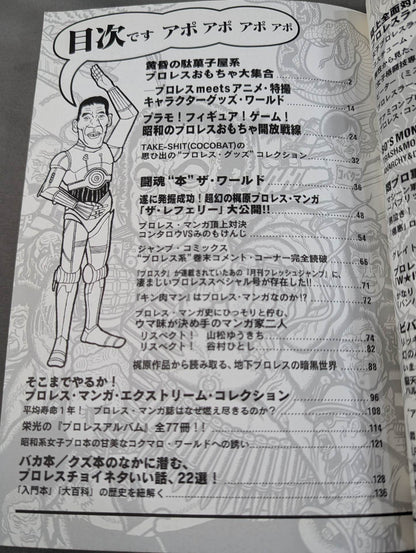 目次です アポ アポ アポ アポ
黄昏の駄菓子屋系
プロレスおもちゃ大集合 2
―プロレスmeetsアニメ・特撮
キャラクターグッズ・ワールド 14
プラモ！フィギュア！ゲーム！
昭和のプロレスおもちゃ開放戦線 24
TAKE-SHIT(COCOBAT)の
思ひ出の"プロレス・グッズ"コレクション 32
闘魂"本"ザ・ワールド 36
遂に発掘成功！超幻の梶原プロレス・マンガ
「ザ・レフェリー」大公開!!
プロレス・マンガ頂上対決
コンタロウVSみのもけんじ
ジャンプ・コミックス
"プロレス系"巻末コメント・コーナー完全読破
『プロスタ』が連載されていたあの『月刊フレッシュジャンプ』に、
凄まじいプロレススペシャル号が存在した!!
『キン肉マン』はプロレス・マンガなのか!?
プロレス・マンガ史にひっそりと佇む、
ウマ昧が決め手のマンガ家二人
リスペクト！ 山松ゆうきち 74
リスペクト！ 谷村ひとし 82
梶原作品から読み取る、地下プロレスの暗黒世界 88
そこまでやるか！
プロレス・マンガ・エクストリーム・コレクション 96
平均寿命1年！ プロレス・マンガ誌はなぜ燃え尽きるのか？ 108
栄光の『プロレスアルバム』全77冊！！ 114
昭和系女子プロ本の甘美なコクマロ・ワールドへの誘い 121
バカ本／クズ本のなかに潜む、
プロレスチョイネタいい話、22選！ 128
「入門本」「大百科」の歴史を紐解く 136